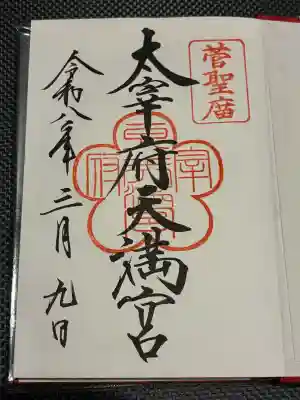 菅聖庿
太宰府天満宮
令和八年三月九日